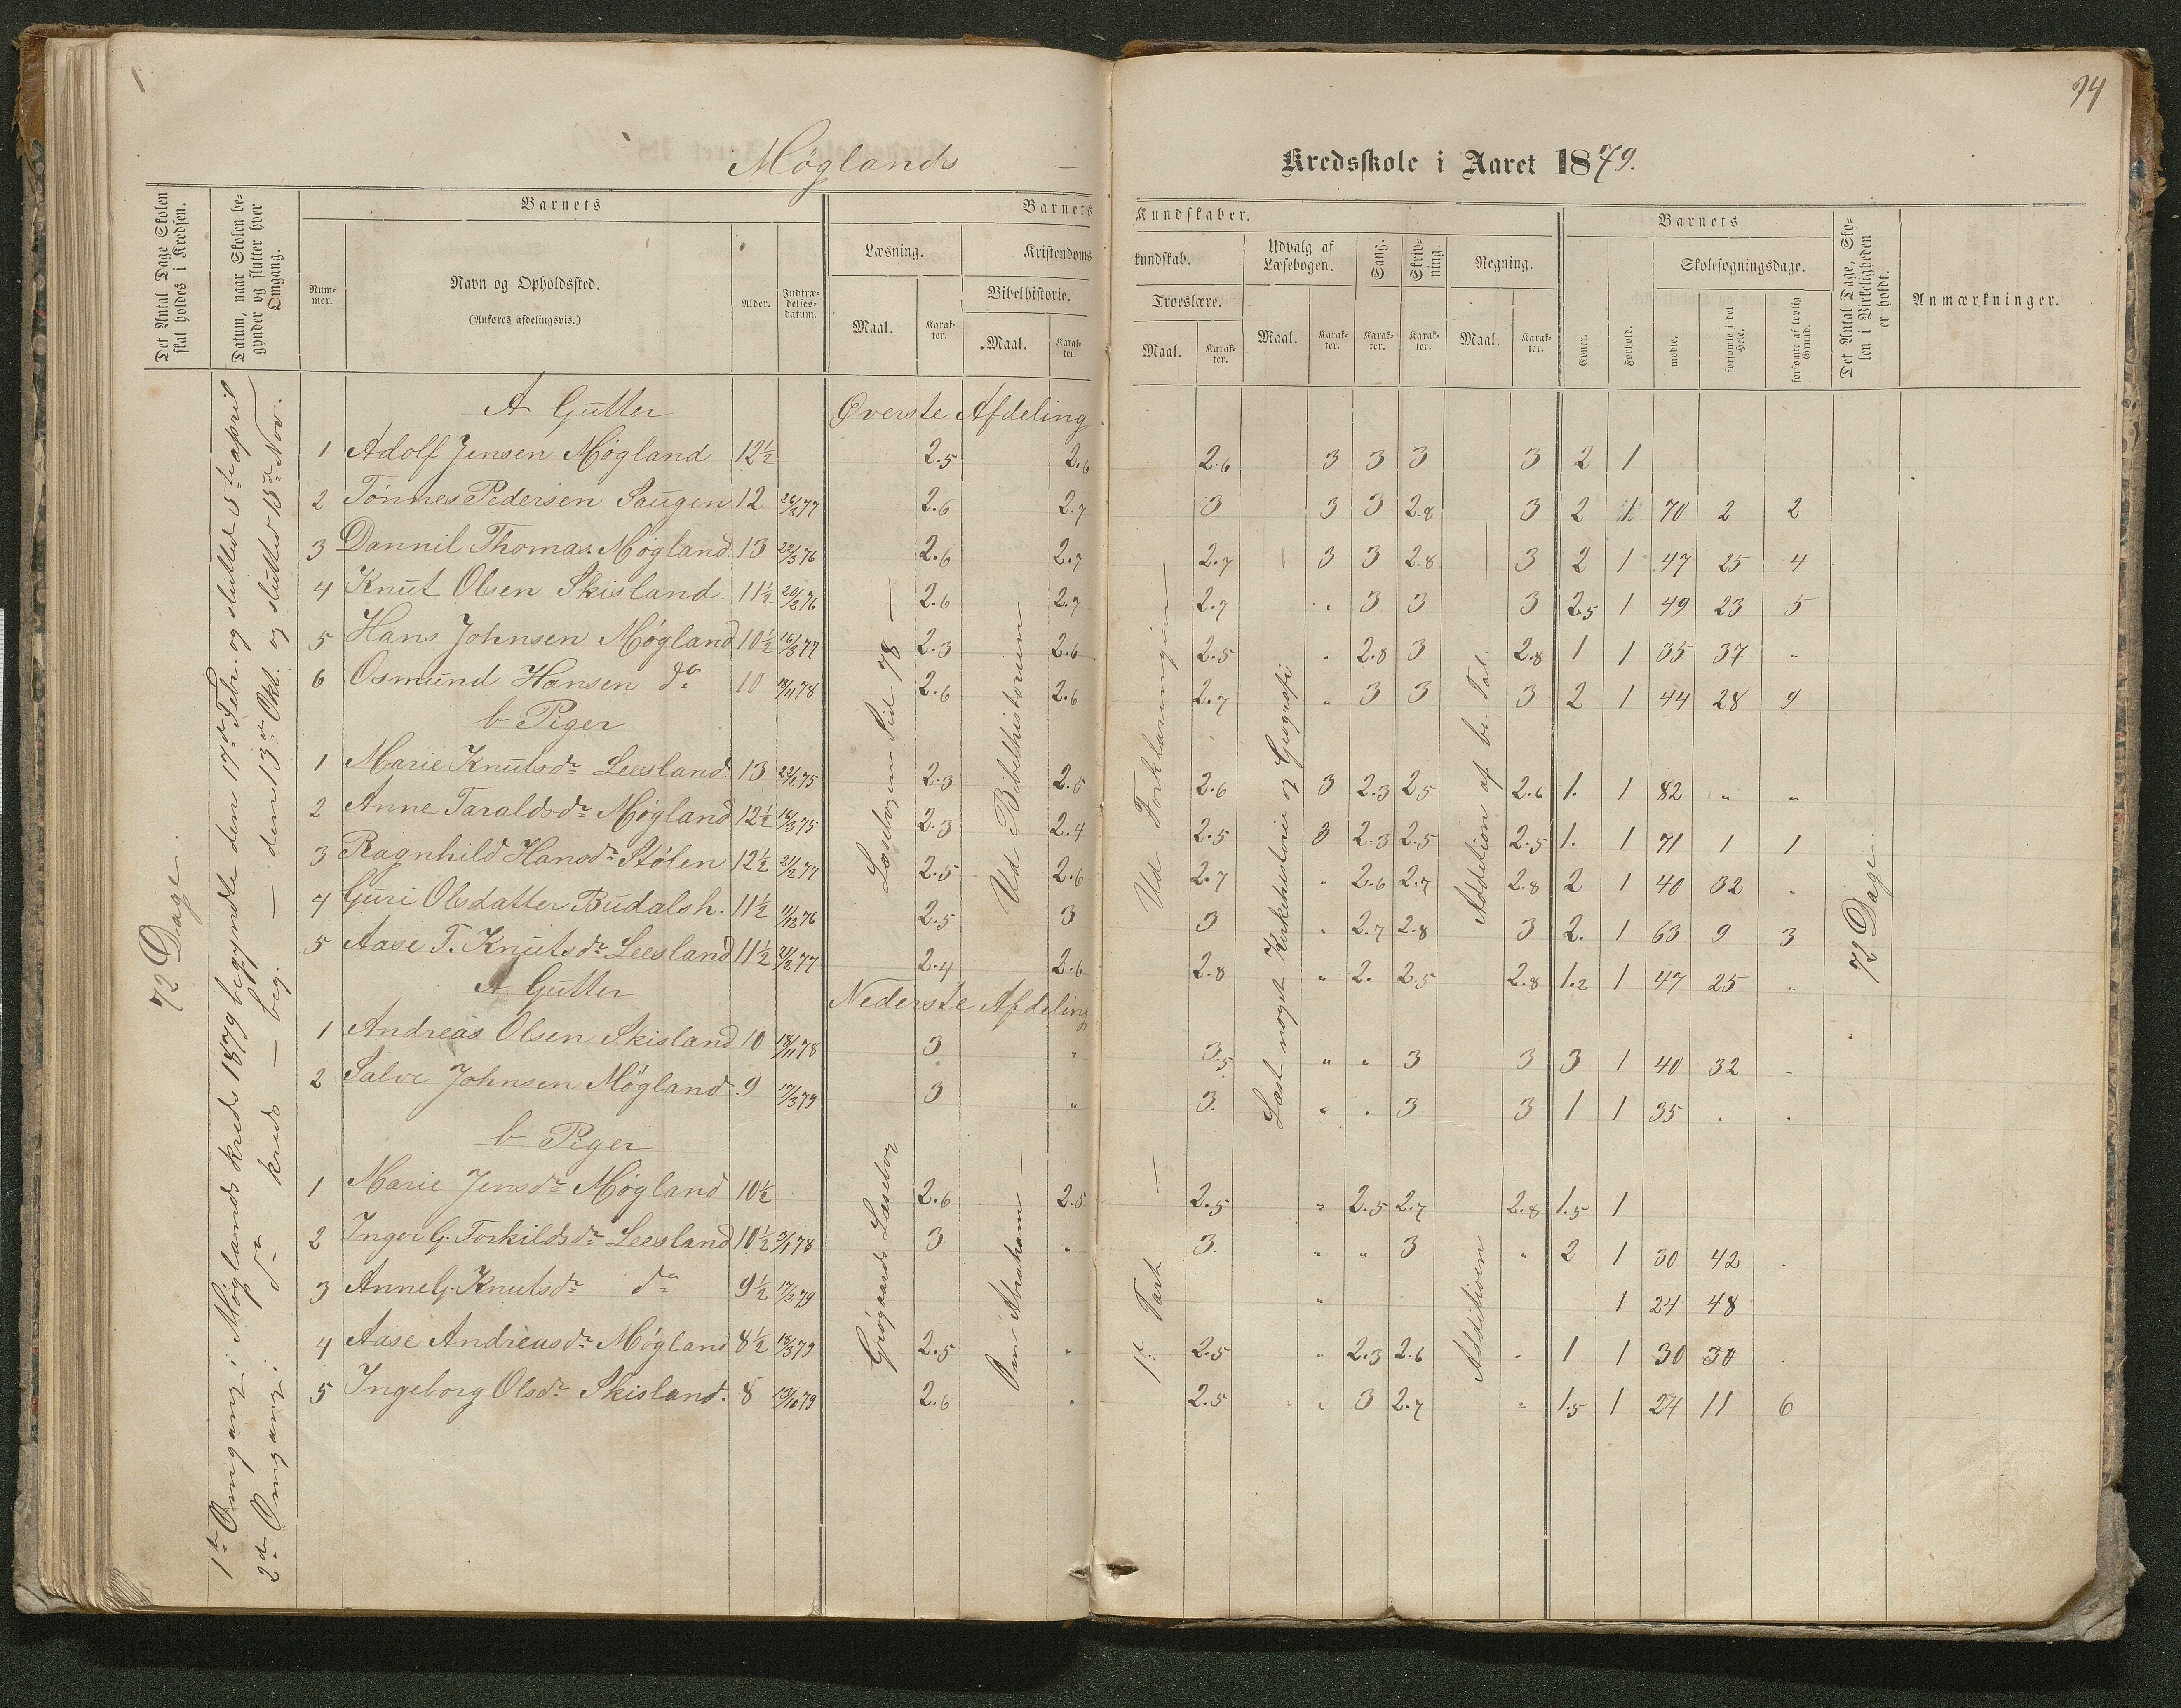 94
Møglands — Kredsskole i Aaret 1879.
Det Antal Dage Skolen skal holdes i Kredsen.
Datum, naar Skolen begynder og slutter hver Omgang.
Barnets
Nummer.
Navn og Opholdssted.
(Anføres afdelingsvis.)
Alder.
Indtrædelsesdatum.
Barnets Kundskaber.
Læsning.
Maal.
Karakter.
Kristendomskundskab.
Bibelhistorie.
Maal.
Karakter.
Troeslære.
Maal.
Karakter.
Udvalg af Læsebogen.
Maal.
Karakter.
Sang.
Karakter.
Skrivning.
Karakter.
Regning.
Maal.
Karakter.
Barnets
Evner.
Forhold.
Skolesøgningsdage.
mødte.
forsømte i det Hele.
forsømte af lovlig Grund.
Det Antal Dage, Skolen i Virkeligheden er holdt.
Anmærkninger.
72 Dage.
1ste Omgang i Møglands kreds 1879 begyndte den 17de Febr. og sluttet 5te april
2den Omgang i do kreds — beg. — den 13de Okt. og slutted 15de Nov.
A Gutter Øverste Afdeling
1 Adolf Jensen Møgland 12½ 2.5 2.6 2.6 3 3 3 3 2 1
2 Tønnes Pedersen Saugen 12 26/3 77 2.6 2.7 3 3 3 2.8 3 2 1 70 2 2
3 Dannil Thomas. Møgland 13 22/3 76 2.6 2.7 2.7 3 3 2.8 3 2 1 47 25 4
4 Knut Olsen Skisland 11½ 20/3 76 2.6 2.7 2.7 " 3 3 3 2.5 1 49 23 5
5 Hans Johnsen Møgland 10½ 16/3 77 2.3 2.6 2.5 " 2.8 3 2.8 1 1 35 37 "
6 Osmund Hansen do 10 18/11 78 2.6 2.6 2.7 " 3 3 3 2 1 44 28 9
b Piger
1 Marie Knutsdr Leesland 13 22/2 75 2.3 2.5 2.6 3 2.3 2.5 2.6 1. 1 82 " "
2 Anne Taraldsdr Møgland 12½ 16/3 75 2.3 2.4 2.5 3 2.3 2.5 2.5 1. 1 71 1 1
3 Ragnhild Hansdr Stølen 12½ 21/2 77 2.5 2.6 2.7 " 2.6 2.7 2.8 2 1 40 32 "
4 Guri Olsdatter Budalsh. 11½ 11/12 76 2.5 3 3 " 2.7 2.8 3 2. 1 63 9 3
5 Aase T. Knutsdr Leesland 11½ 21/2 77 2.4 2.6 2.8 " 2. 2.5 2.8 1.2 1 47 25 "
Læsebogen Sid 78 —
Ud Bibelhistorien
Ud Forklaringen —
Læst noget Kirkehistorie og Geografi
Addition af be. Tal.
72 Dage.
A Gutter Nederste Afdeling
1 Andreas Olsen Skisland 10 18/11 78 3 " 3.5 " " 3 3 3 1 40 32 "
2 Salve Johnsen Møgland 9 17/3 79 3 " 3. " " 3 3 1 1 35 " "
b Piger
1 Marie Jensdr Møgland 10½ 2.6 2.5 2.5 " 2.5 2.7 2.8 1.5 1
2 Inger G. Torkildsdr Leesland 10½ 3/1 78 3 " 3. " " 3 " 2 1 30 42 "
3 Anne G. Knutsdr do 9½ 17/3 79 " 1 24 48
4 Aase Andreasdr Møgland 8½ 18/3 79 2.5 " 2.5 " 2.3 2.6 " 1 1 30 30 "
5 Ingeborg Olsdr Skisland. 8 13/10 79 2.6 " 2.5 " 3 2.7 " 1.5 1 24 11 6
Grøgaards Læsebog
Om Abraham —
1te Part —
Additionen